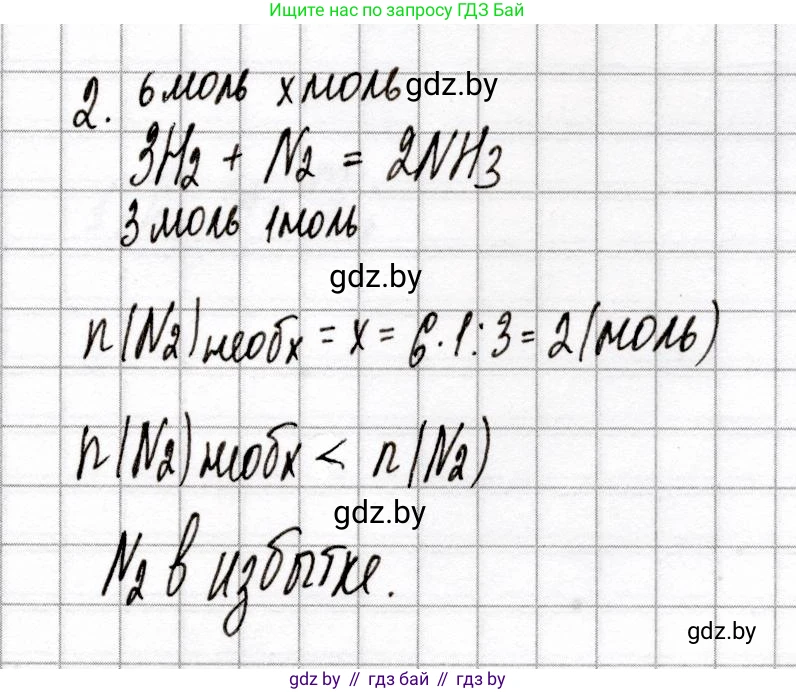 Ищите нас по запросу ГДЗ Бай
2. 6 моль x моль gdz.by
3H2 + N2 = 2NH3
3 моль 1 моль
gdz.by
n(N2)необх = x = 6·1:3 = 2(моль)
n(N2)необх < n(N2)
gdz.by
N2 в избытке.
gdz.by
gdz.by // гдз бай // gdz.by